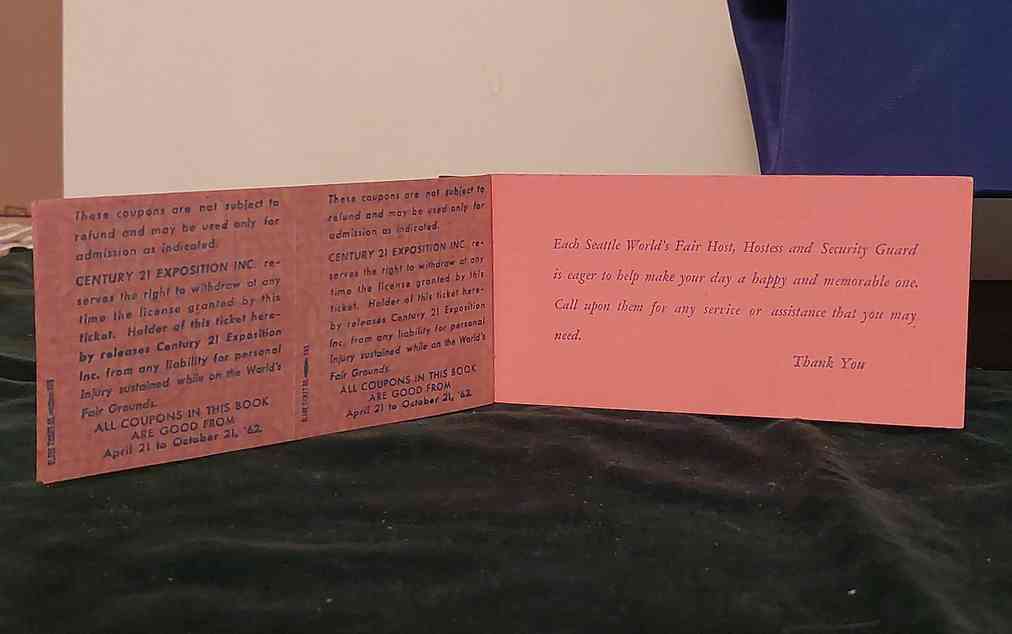 These coupons are not subject to
refund and may be used only for
admission as indicated.
CENTURY 21 EXPOSITION INC. re-
serves the right to withdraw at any
time the license granted by this
ticket. Holder of this ticket here-
by releases Century 21 Exposition
Inc. from any liability for personal
injury sustained while on the World's
Fair Grounds.
ALL COUPONS IN THIS BOOK
ARE GOOD FROM
April 21 to October 21, '62
These coupons are not subject to
refund and may be used only for
admission as indicated.
CENTURY 21 EXPOSITION INC. re-
serves the right to withdraw at any
time the license granted by this
ticket. Holder of this ticket here-
by releases Century 21 Exposition
Inc. from any liability for personal
Injury sustained while on the World's
Fair Grounds.
ALL COUPONS IN THIS BOOK
ARE GOOD FROM
April 21 to October 21, '62
Each Seattle World's Fair Host, Hostess and Security Guard
is eager to help make your day a happy and memorable one.
Call upon them for any service or assistance that you may
need.
Thank You